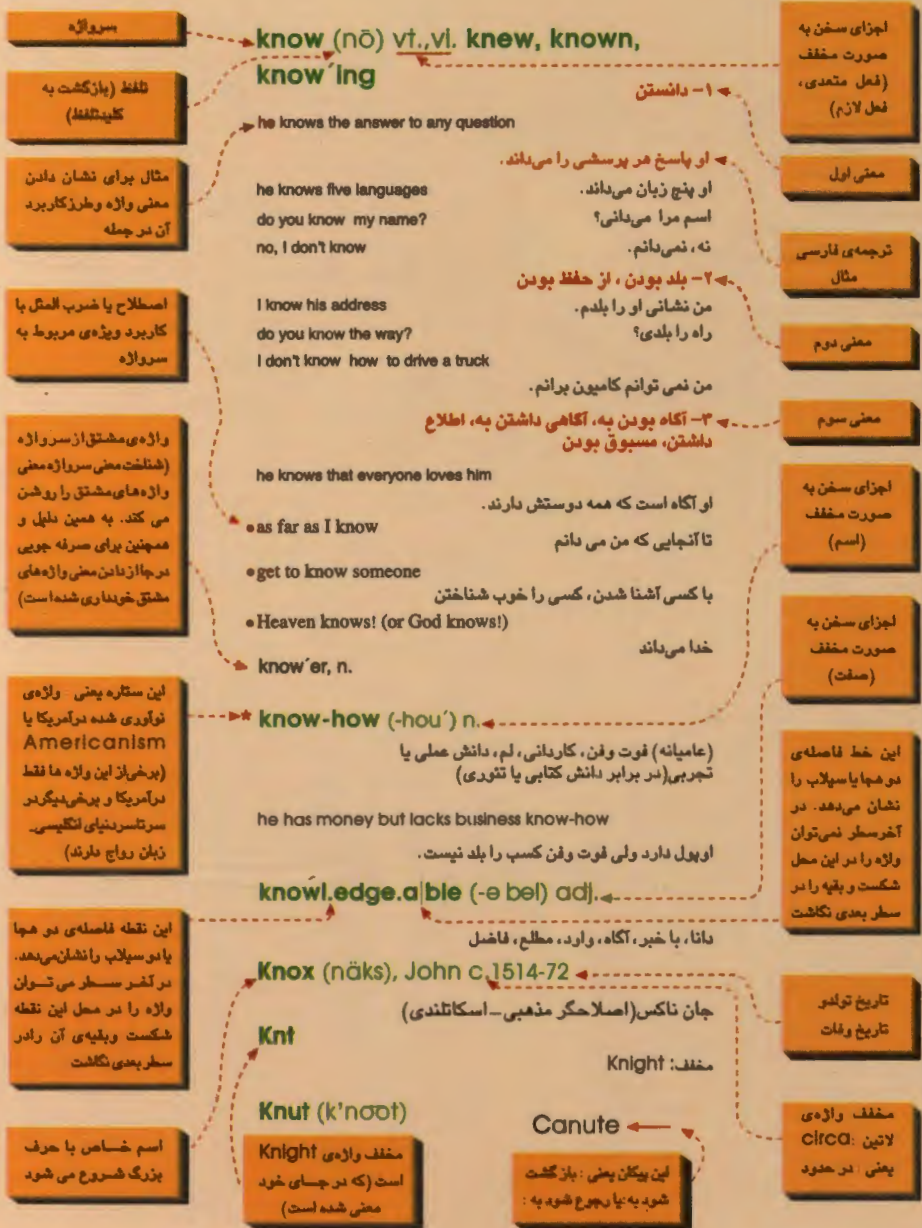 سرواژه
تلفظ (بازگشت به
کلیدتلفظ)
مثال برای نشان دادن
معنی واژه وطرزکاربرد
آن در جمله
اصطلاح یا ضرب المثل با
کاربرد ویژه‌ی مربوط به
سرواژه
واژه‌ی مشتق از سرواژه
(شناخت معنی سرواژه معنی
واژه‌های مشتق را روشن
می کند. به همین دلیل و
همچنین برای صرفه جویی
درجا از دادن معنی واژه‌های
مشتق خودداری شده است)
این ستاره یعنی واژه‌ی
نوآوری شده درآمریکا یا
Americanism
(برخی از این واژه ها فقط
درآمریکا و برخی دیگر در
سرتاسر دنیای انگلیسی_
زبان رواج دارند)
این نقطه فاصله‌ی دو هجا
یا دو سیلاب را نشان می‌دهد.
در آخر سطر می توان
واژه را در محل این نقطه
شکست وبقیه‌ی آن رادر
سطر بعدی نگاشت
اسم خاص با حرف
بزرگ شروع می شود
know (nō) vt.,vi. knew, known,
know´ing
۱- دانستن
he knows the answer to any question
او پاسخ هر پرسشی را می‌داند.
he knows five languages او پنج زبان می‌داند.
do you know my name? اسم مرا می‌دانی؟
no, I don't know نه، نمی‌دانم.
۲- بلد بودن ، از حفظ بودن
I know his address من نشانی او را بلدم.
do you know the way? راه را بلدی؟
I don't know how to drive a truck
من نمی توانم کامیون برانم.
۳- آگاه بودن به، آگاهی داشتن به، اطلاع
داشتن، مسبوق بودن
he knows that everyone loves him
او آگاه است که همه دوستش دارند.
•as far as I know
تا آنجایی که من می دانم
•get to know someone
با کسی آشنا شدن، کسی را خوب شناختن
•Heaven knows! (or God knows!)
خدا می‌داند
know´er, n.
* know-how (-hou´) n.
(عامیانه) فوت وفن، کاردانی، لم، دانش عملی یا
تجربی(در برابر دانش کتابی یا تئوری)
he has money but lacks business know-how
اوپول دارد ولی فوت وفن کسب را بلد نیست.
knowl´.edge.a|ble (-ə bəl) adj.
دانا، با خبر، آگاه، وارد، مطلع، فاضل
Knox (näks), John c.1514-72
جان ناکس(اصلاحگر مذهبی_اسکاتلندی)
Knt
مخفف: Knight
Knut (k'no͞ot)
Canute ←
مخفف واژه‌ی Knight
است (که در جای خود
معنی شده است)
این پیکان یعنی : بازگشت
شود به:یا رجوع شود به :
اجزای سخن به
صورت مخفف
(فعل متعدی،
فعل لازم)
معنی اول
ترجمه‌ی فارسی
مثال
معنی دوم
معنی سوم
اجزای سخن به
صورت مخفف
(اسم)
اجزای سخن به
صورت مخفف
(صفت)
این خط فاصله‌ی
دو هجا یا سیلاب را
نشان می‌دهد. در
آخرسطر نمی‌توان
واژه را در این محل
شکست و بقیه را در
سطر بعدی نگاشت
تاریخ تولدو
تاریخ وفات
مخفف واژه‌ی
لاتین :circa
یعنی : در حدود